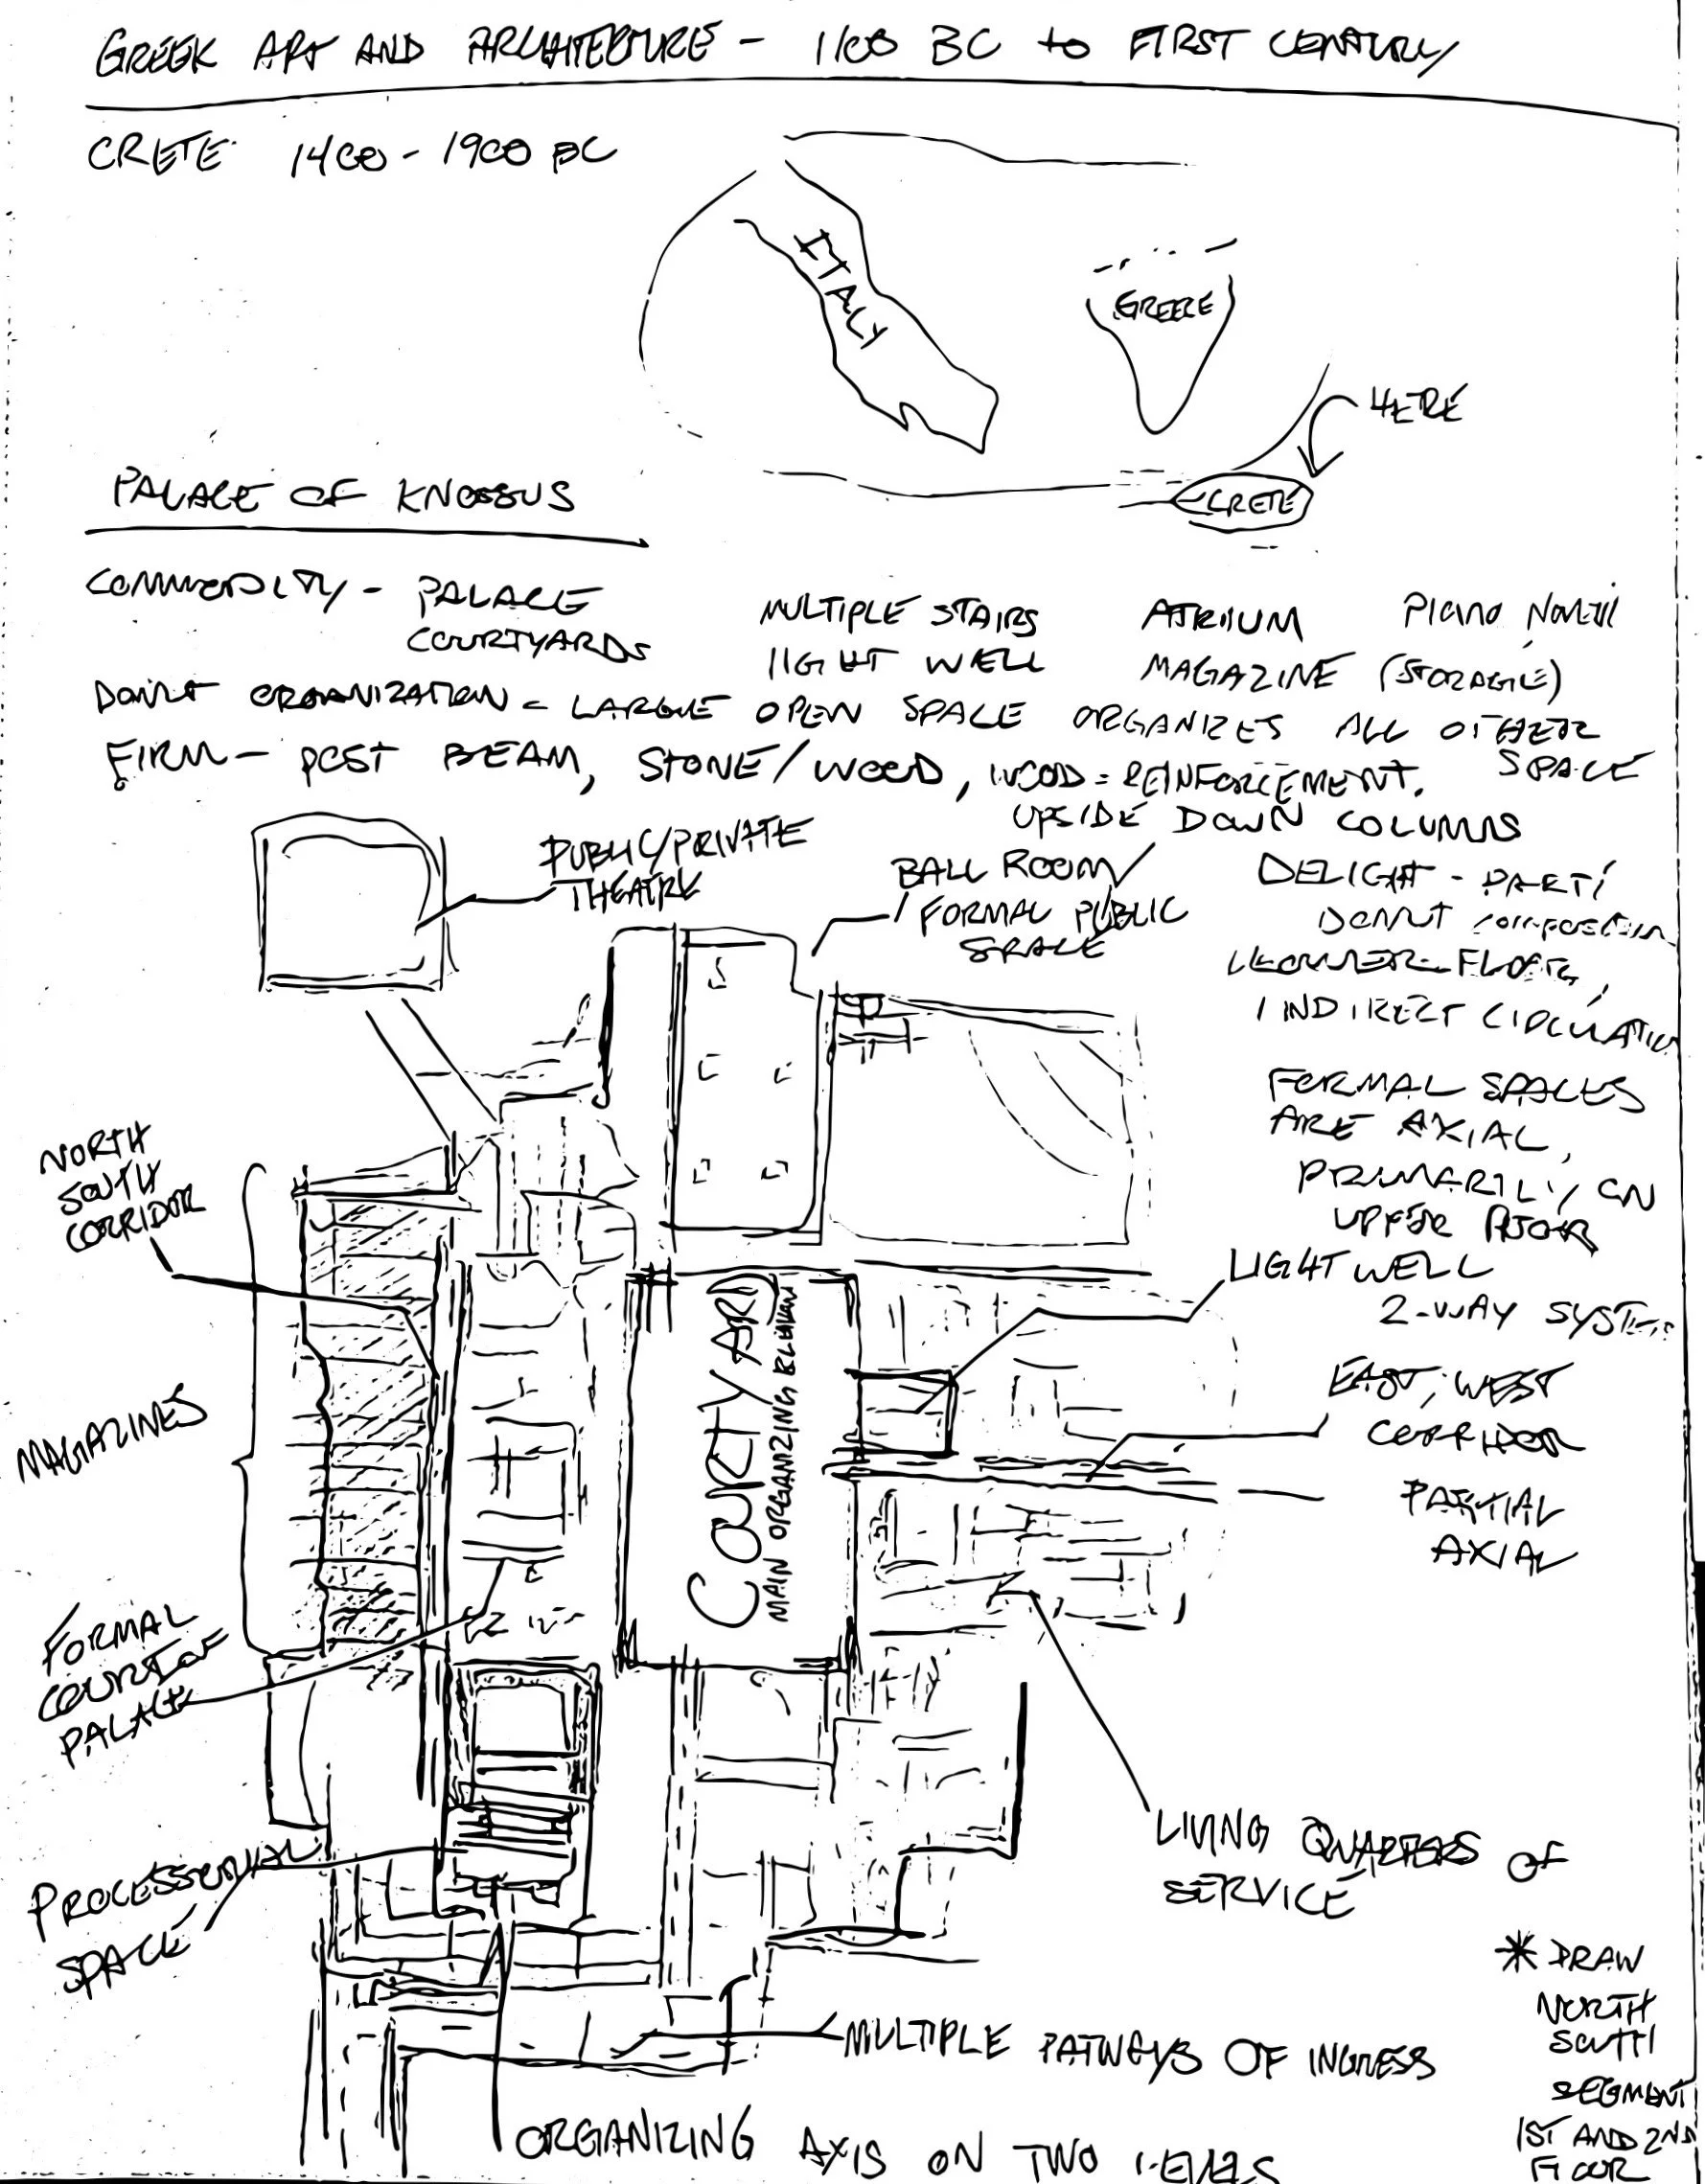 GREEK ART AND ARCHITECTURE - 1100 BC to FIRST CENTURY
CRETE 1400 - 1900 BC
ITALY
GREECE
HERE
CRETE
PALACE OF KNOSSUS
COMMODITY - PALACE
COURTYARDS
MULTIPLE STAIRS
LIGHT WELL
ATRIUM
MAGAZINE (STORAGE)
PIANO
DONUT ORGANIZATION = LARGE OPEN SPACE ORGANIZES ALL OTHER
SPACE
FIRM - POST BEAM, STONE/WOOD, WOOD = REINFORCEMENT.
UPSIDE DOWN COLUMNS
PUBLIC/PRIVATE
THEATRE
BALL ROOM/
FORMAL PUBLIC
SPACE
DELIGHT - PARTI
DONUT COMPOSITION
FLOORS,
INDIRECT CIRCULATION
FORMAL SPACES
ARE AXIAL,
PRIMARILY ON
UPPER FLOOR
LIGHT WELL
2-WAY SYSTEM
NORTH
SOUTH
CORRIDOR
MAGAZINES
COURTYARD
MAIN ORGANIZING
EAST, WEST
CORRIDOR
PARTIAL
AXIAL
FORMAL
COURT OF
PALACE
PROCESSIONAL
SPACE
LIVING QUARTERS OF
SERVICE
MULTIPLE PATWAYS OF INGRESS
ORGANIZING AXIS ON TWO LEVELS
* DRAW
NORTH
SOUTH
SEGMENT
1ST AND 2ND
FLOOR